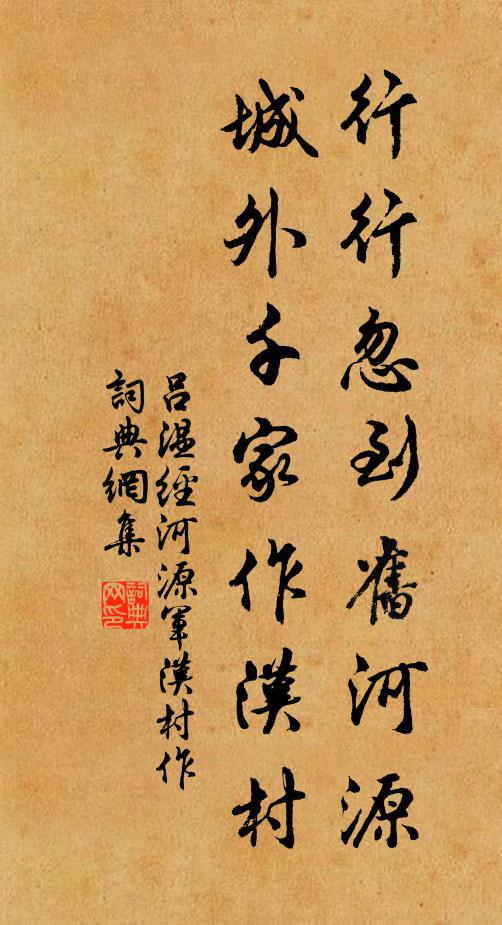 行行忽到舊河源
城外千家作漢村
吕溫經河源軍漢村作
詞典網集
詞典
网印